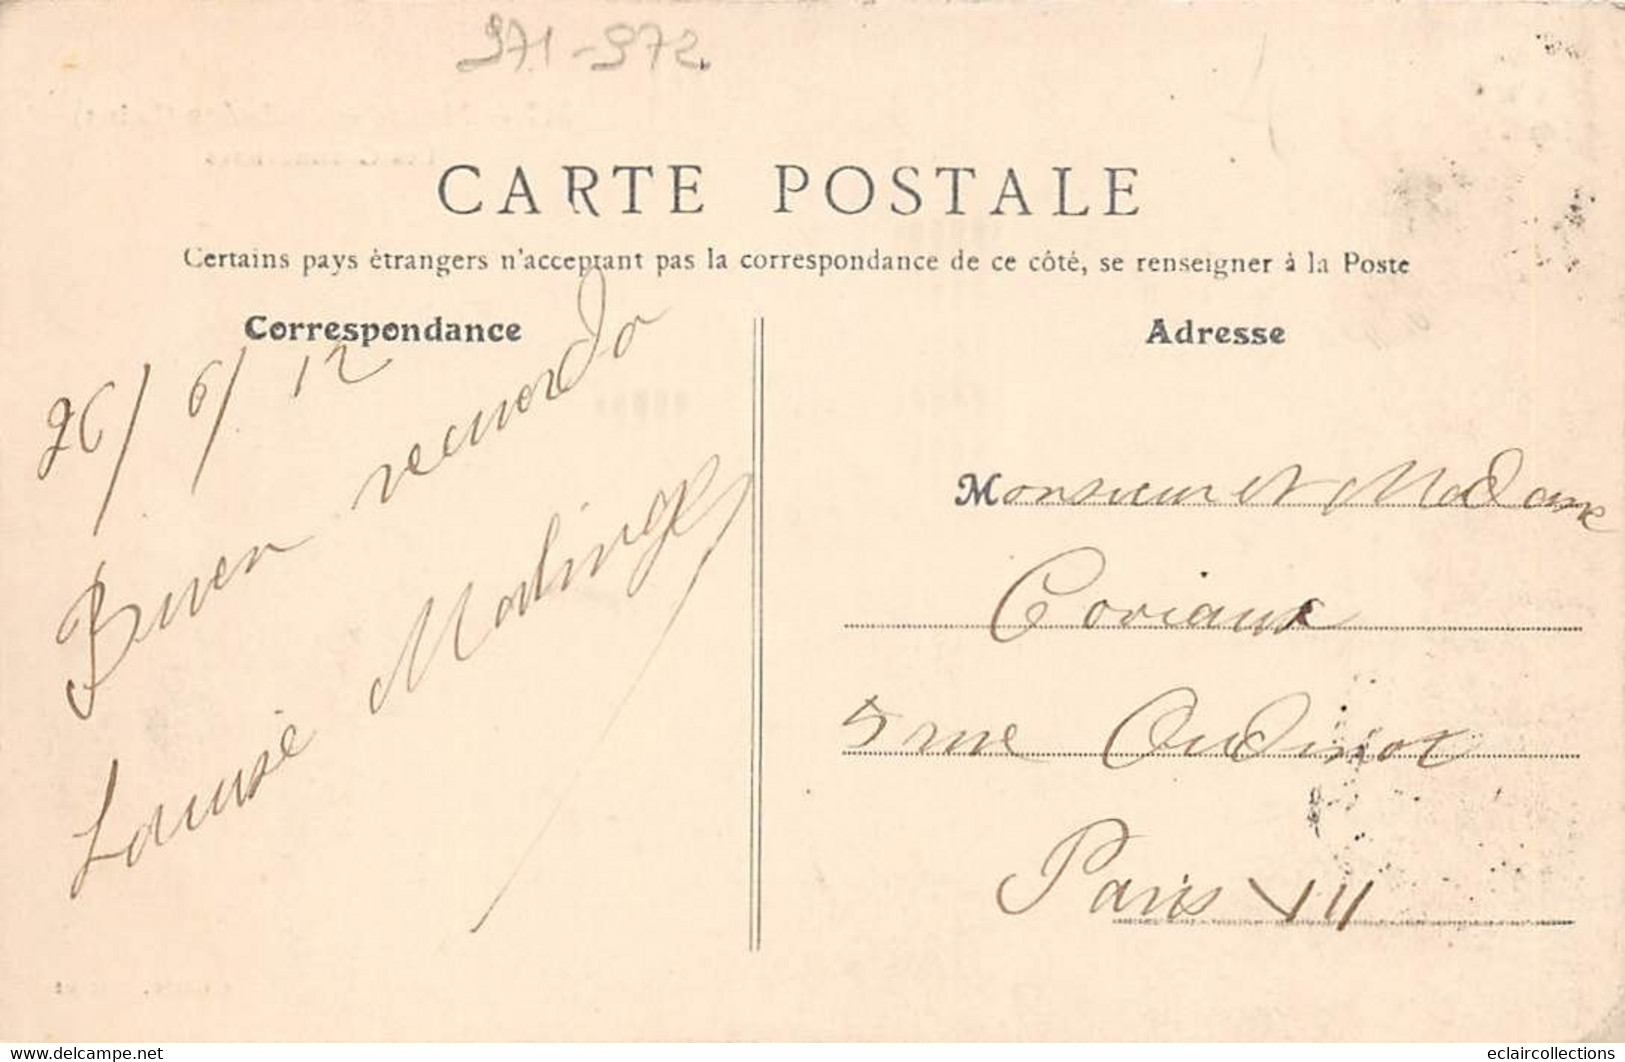 971-972
CARTE POSTALE
Certains pays étrangers n'acceptant pas la correspondance de ce côté, se renseigner à la Poste
Correspondance
26/6/12
Buen recuerdo
Louise
Adresse
Monsieur et Madame
Coriaux
5 rue Oudinot
Paris VII
eclaircollections
www.delcampe.net